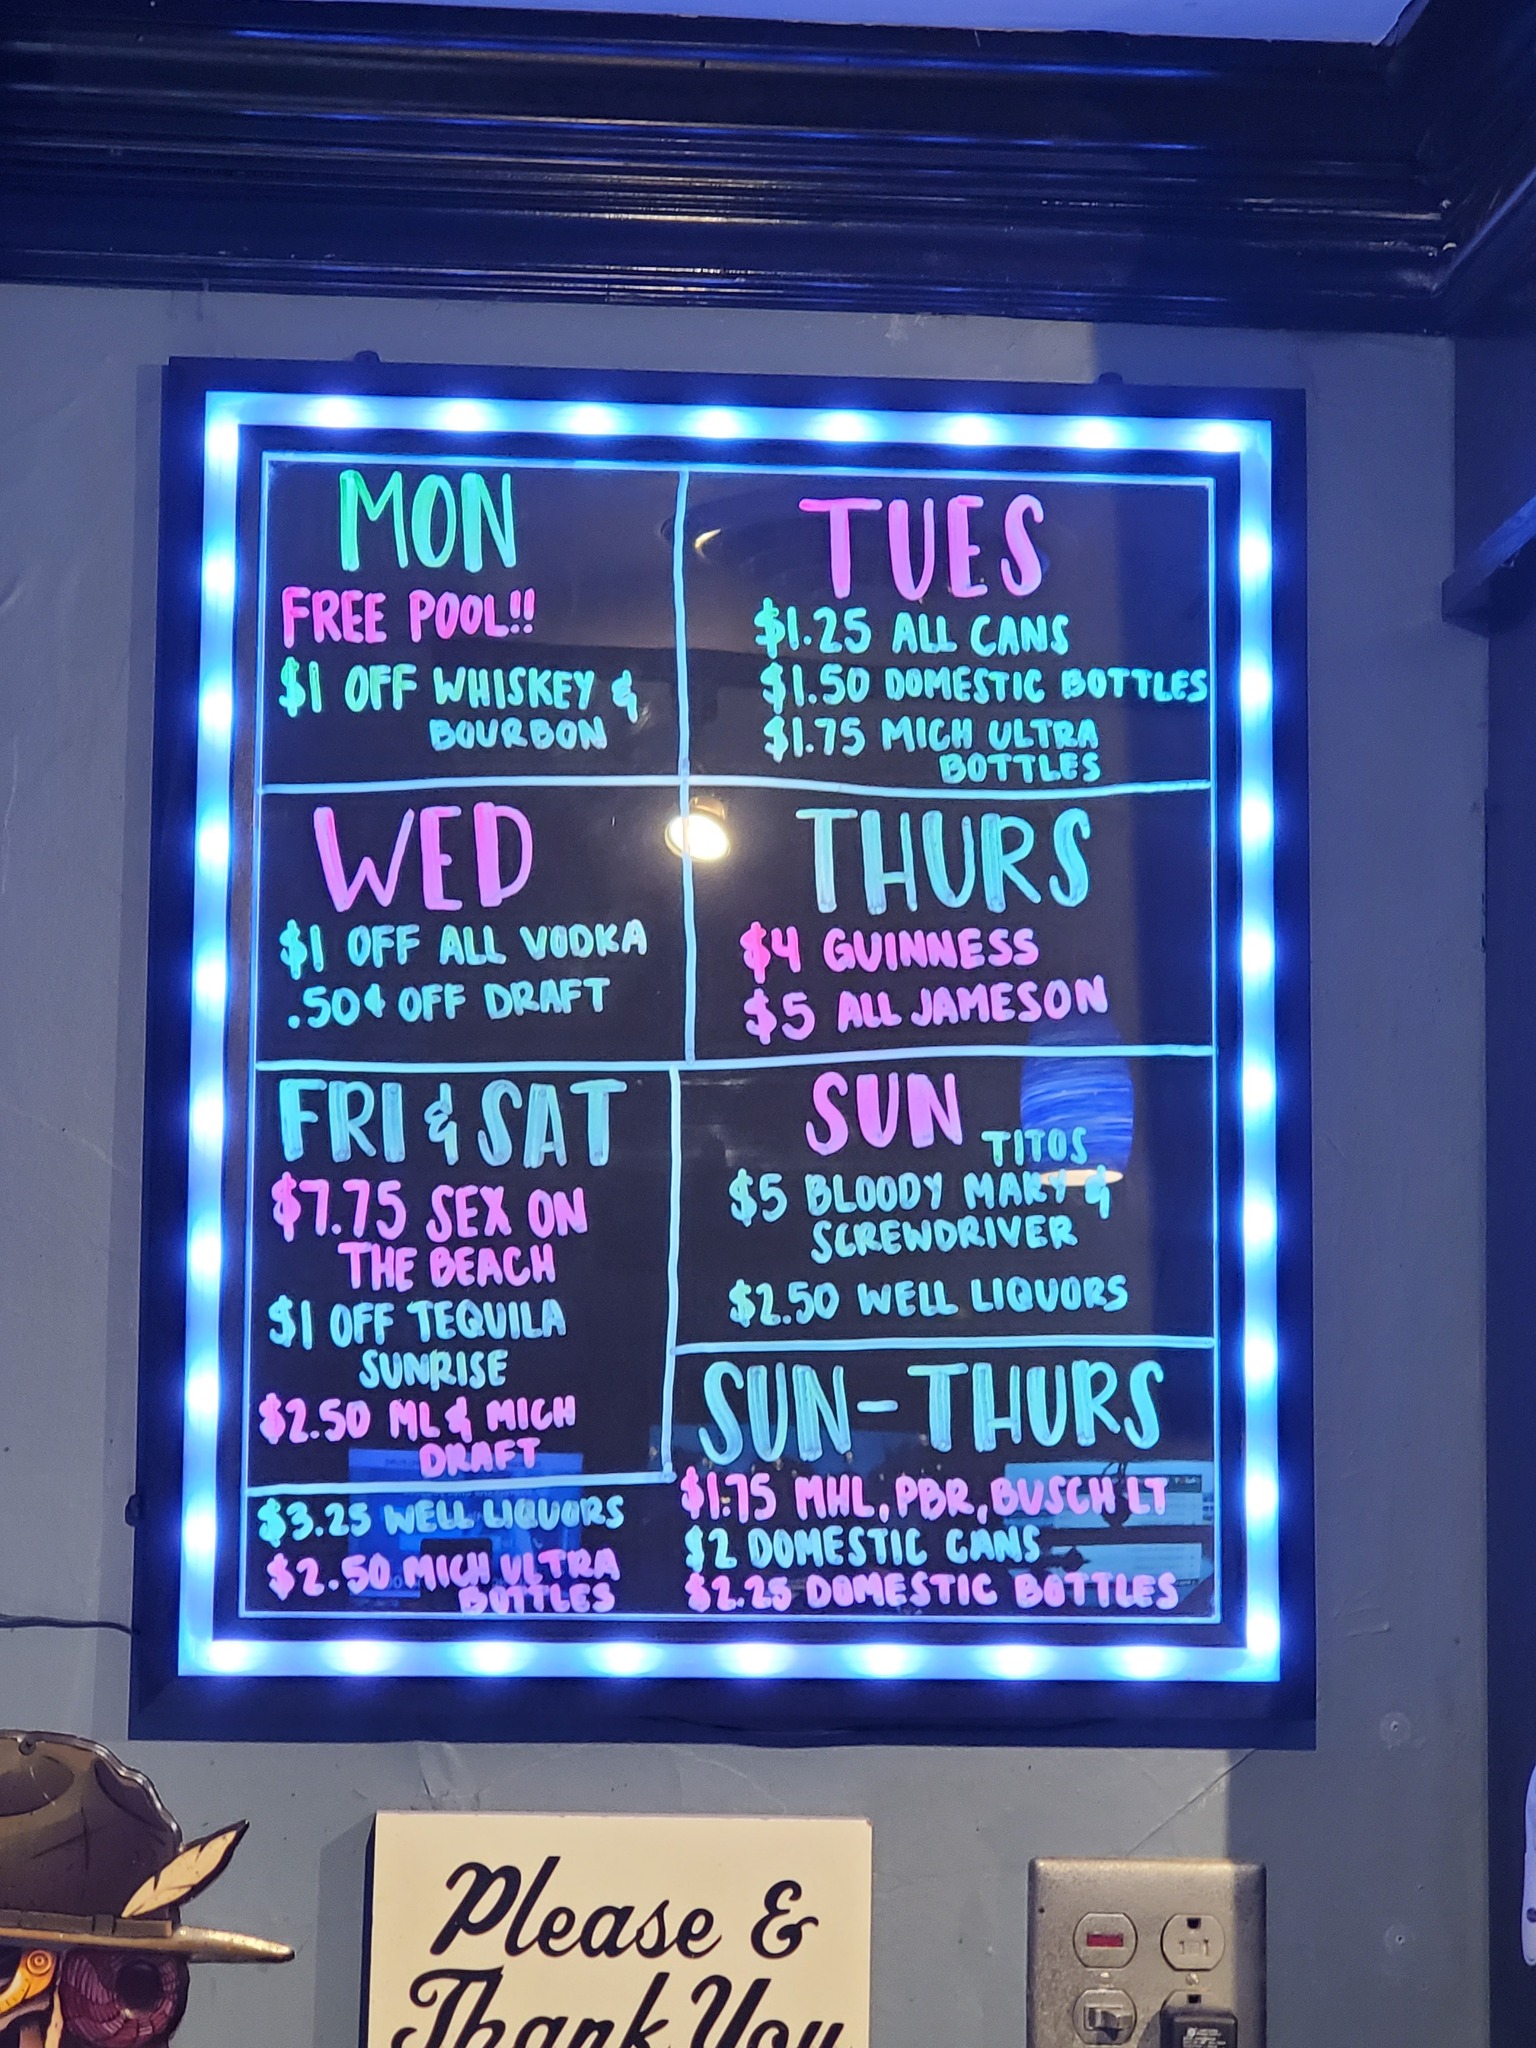 MON
FREE POOL!!
$1 OFF WHISKEY &
BOURBON
TUES
$1.25 ALL CANS
$1.50 DOMESTIC BOTTLES
$1.75 MICH ULTRA
BOTTLES
WED
$1 OFF ALL VODKA
.50¢ OFF DRAFT
THURS
$4 GUINNESS
$5 ALL JAMESON
FRI & SAT
$7.75 SEX ON
THE BEACH
$1 OFF TEQUILA
SUNRISE
$2.50 ML & MICH
DRAFT
SUN
TITOS
$5 BLOODY MARY &
SCREWDRIVER
$2.50 WELL LIQUORS
SUN-THURS
$1.75 MHL, PBR, BUSCH LT
$2 DOMESTIC CANS
$2.25 DOMESTIC BOTTLES
$3.25 WELL LIQUORS
$2.50 MICH ULTRA
BOTTLES
Please &
Thank You